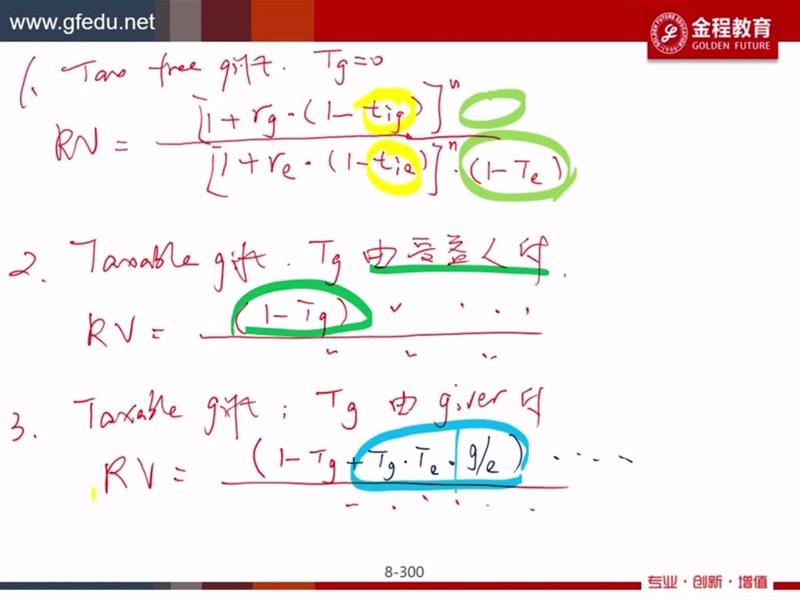 www.gfedu.net
金程教育
GOLDEN FUTURE
1. Tax free gift. Tg=0
RV = [1+rg·(1-tig)]^n / [1+re·(1-tie)]^n·(1-Te)
2. Taxable gift. Tg 由受益人付.
RV = (1-Tg)
3. Taxable gift; Tg 由 giver 付
RV = (1-Tg+Tg·Te·g/e) ····
8-300
专业·创新·增值